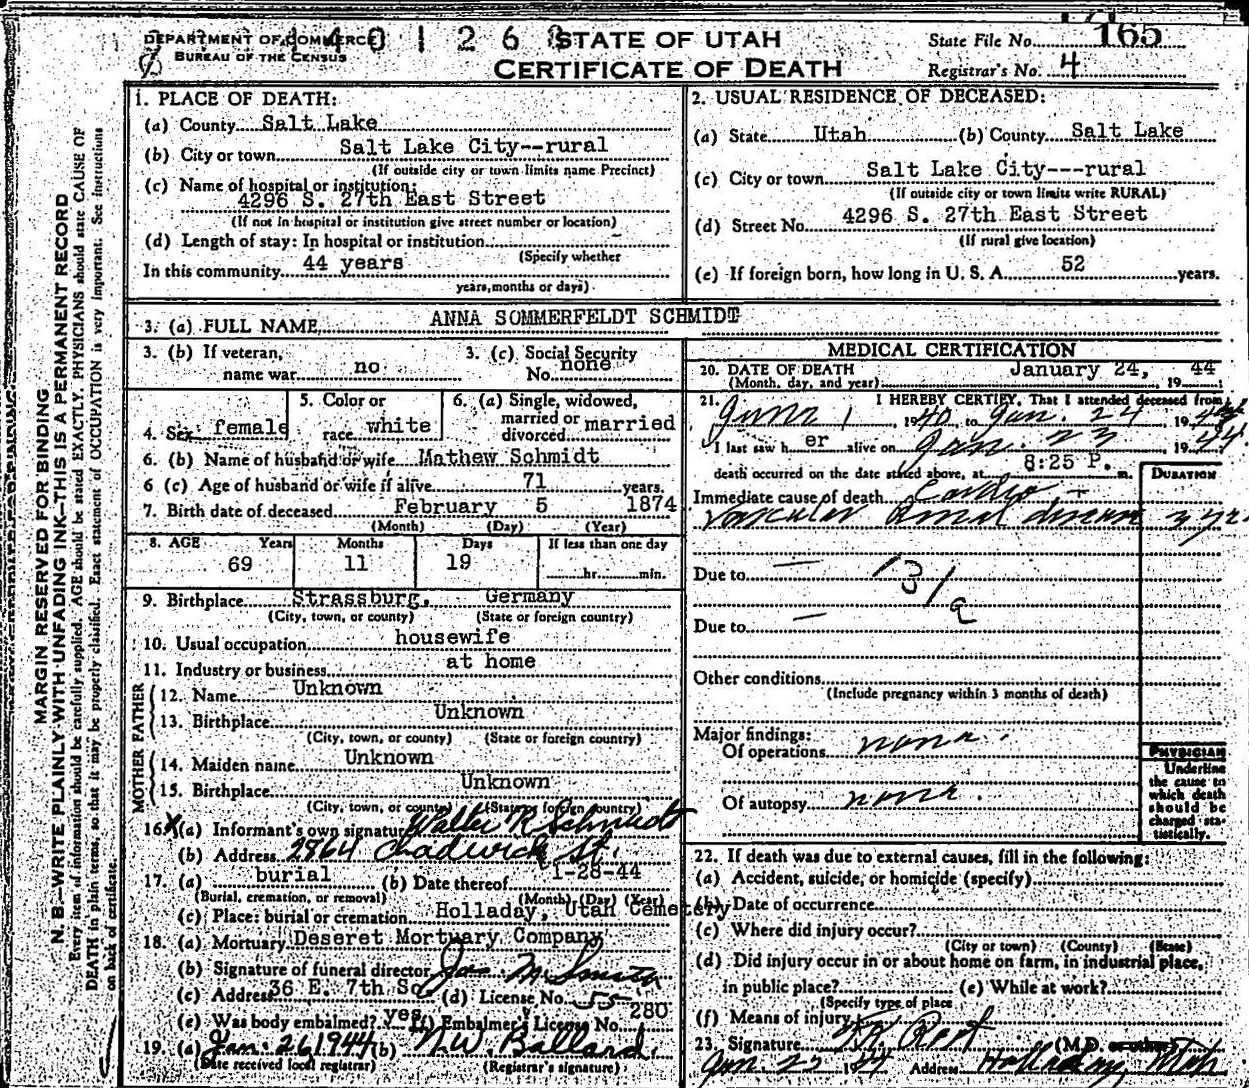 DEPARTMENT OF COMMERCE
BUREAU OF THE CENSUS
4 0 1 2 6 8
STATE OF UTAH
CERTIFICATE OF DEATH
State File No. 165
Registrar's No. 4
MARGIN RESERVED FOR BINDING
N. B.—WRITE PLAINLY WITH UNFADING INK—THIS IS A PERMANENT RECORD
Every item of information should be carefully supplied. AGE should be stated EXACTLY. PHYSICIANS should state CAUSE OF
DEATH in plain terms, so that it may be properly classified. Exact statement of OCCUPATION is very important. See instructions
on back of certificate.
1. PLACE OF DEATH:
(a) County Salt Lake
(b) City or town Salt Lake City--rural
(If outside city or town limits name Precinct)
(c) Name of hospital or institution:
4296 S. 27th East Street
(If not in hospital or institution give street number or location)
(d) Length of stay: In hospital or institution
(Specify whether
In this community 44 years
years, months or days)
2. USUAL RESIDENCE OF DECEASED:
(a) State Utah (b) County Salt Lake
(c) City or town Salt Lake City---rural
(If outside city or town limits write RURAL)
(d) Street No. 4296 S. 27th East Street
(If rural give location)
(e) If foreign born, how long in U. S. A. 52 years.
3. (a) FULL NAME ANNA SOMMERFELDT SCHMIDT
3. (b) If veteran, name war no
3. (c) Social Security No. none
4. Sex female
5. Color or race white
6. (a) Single, widowed, married or divorced married
6. (b) Name of husband or wife Mathew Schmidt
6 (c) Age of husband or wife if alive 71 years.
7. Birth date of deceased February 5 1874
(Month) (Day) (Year)
8. AGE Years Months Days If less than one day
69 11 19 hr. min.
9. Birthplace Strassburg, Germany
(City, town, or county) (State or foreign country)
10. Usual occupation housewife
11. Industry or business at home
FATHER
12. Name Unknown
13. Birthplace Unknown
(City, town, or county) (State or foreign country)
MOTHER
14. Maiden name Unknown
15. Birthplace Unknown
(City, town, or county) (State or foreign country)
16. X (a) Informant's own signature Walter R Schmidt
(b) Address 2964 Chadwick St.
17. (a) burial (b) Date thereof 1-28-44
(Burial, cremation, or removal) (Month) (Day) (Year)
(c) Place: burial or cremation Holladay, Utah Cemetery
18. (a) Mortuary Deseret Mortuary Company
(b) Signature of funeral director Jos M Smith
(c) Address 36 E. 7th So. (d) License No. 55
(e) Was body embalmed? yes (f) Embalmer's License No. 280
19. (a) Jan. 26, 1944 (b) N.W. Ballard.
(Date received local registrar) (Registrar's signature)
MEDICAL CERTIFICATION
20. DATE OF DEATH January 24, 1944;
(Month, day, and year)
21. I HEREBY CERTIFY, That I attended deceased from
1, 1940, to Jan. 24, 1944
I last saw her alive on Jan. 23, 1944
death occurred on the date stated above, at 8:25 P. m.
DURATION
Immediate cause of death Cardio +
Vascular Renal disease 3 yrs
Due to —
131a
Due to —
Other conditions
(Include pregnancy within 3 months of death)
Major findings:
Of operations none.
Of autopsy none.
PHYSICIAN
Underline
the cause to
which death
should be
charged sta-
tistically.
22. If death was due to external causes, fill in the following:
(a) Accident, suicide, or homicide (specify)
(b) Date of occurrence
(c) Where did injury occur?
(City or town) (County) (State)
(d) Did injury occur in or about home on farm, in industrial place,
in public place? (e) While at work?
(Specify type of place
(f) Means of injury
23. Signature (M.D. or other)
Jan. 25 1944 Address Holladay, Utah